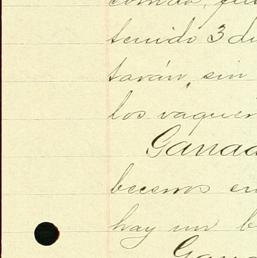 tenido 3 di
tarán, sin
los vaquer
Ganad
becerros en
hay un b
Gana